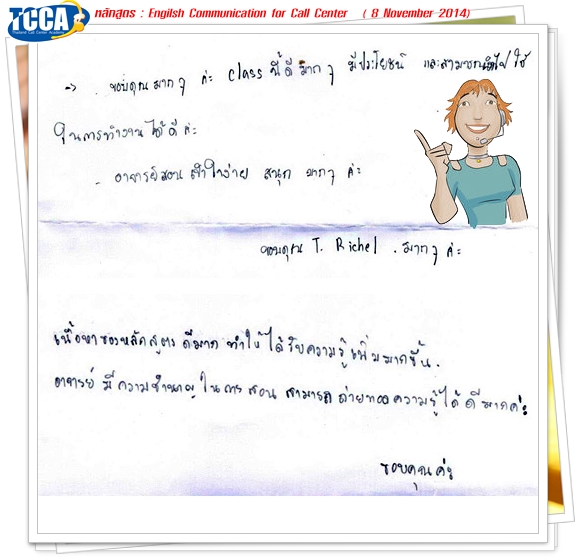 TCCA
Thailand Call Center Academy
หลักสูตร : Engilsh Communication for Call Center ( 8 November 2014)
→ . ขอบคุณมากๆ ค่ะ class นี้ดีมากๆ มีประโยชน์ และสามารถนำไปใช้
ในการทำงานได้ดีค่ะ
- อาจารย์สอนเข้าใจง่าย สนุก มากๆ ค่ะ
ขอบคุณ T. Richel . มากๆ ค่ะ
เนื้อหาของหลักสูตร ดีมาก ทำให้ได้รับความรู้เพิ่มมากขึ้น.
อาจารย์ มีความชำนาญในการสอน สามารถถ่ายทอดความรู้ได้ดีมากค่ะ
ขอบคุณค่ะ